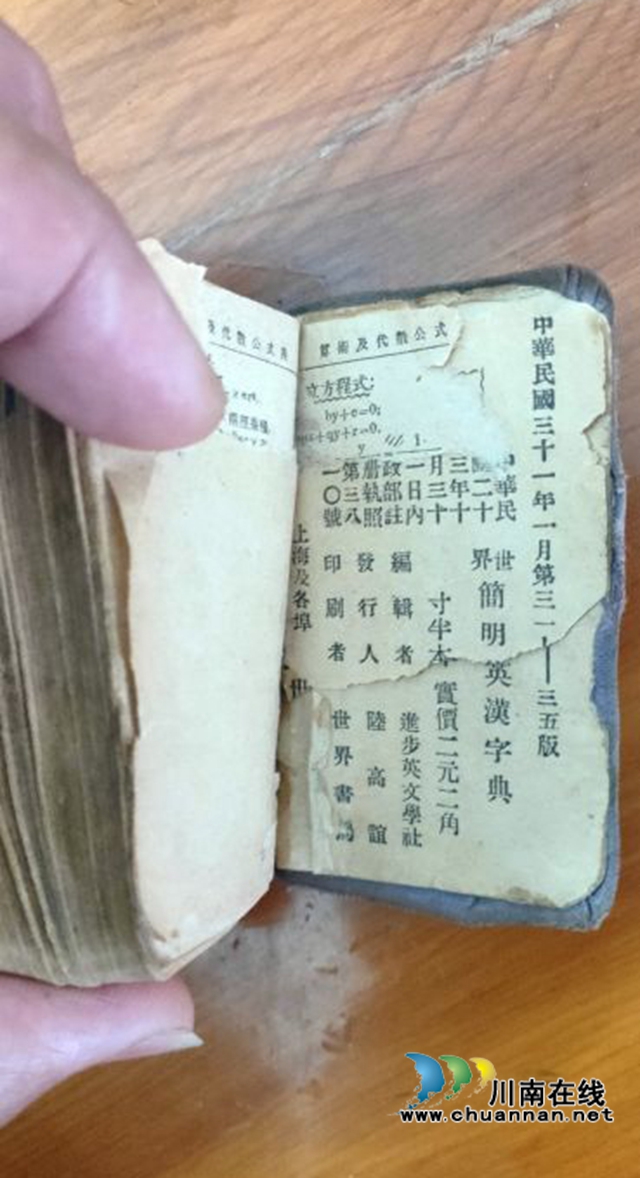 算術及代數公式
立方程式:
by+c=0;
中華民國三十一年一月第三一——三五版
世界簡明英漢字典
寸半本實價二元二角
中華民
國二十
三年十
月三十
一日內
政部註
冊執照
第三八
一〇號
編輯者 進步英文學社
發行人 陸高誼
印刷者 世界書局
上海及各埠 世
及代數公式
川南在线
www.chuannan.net